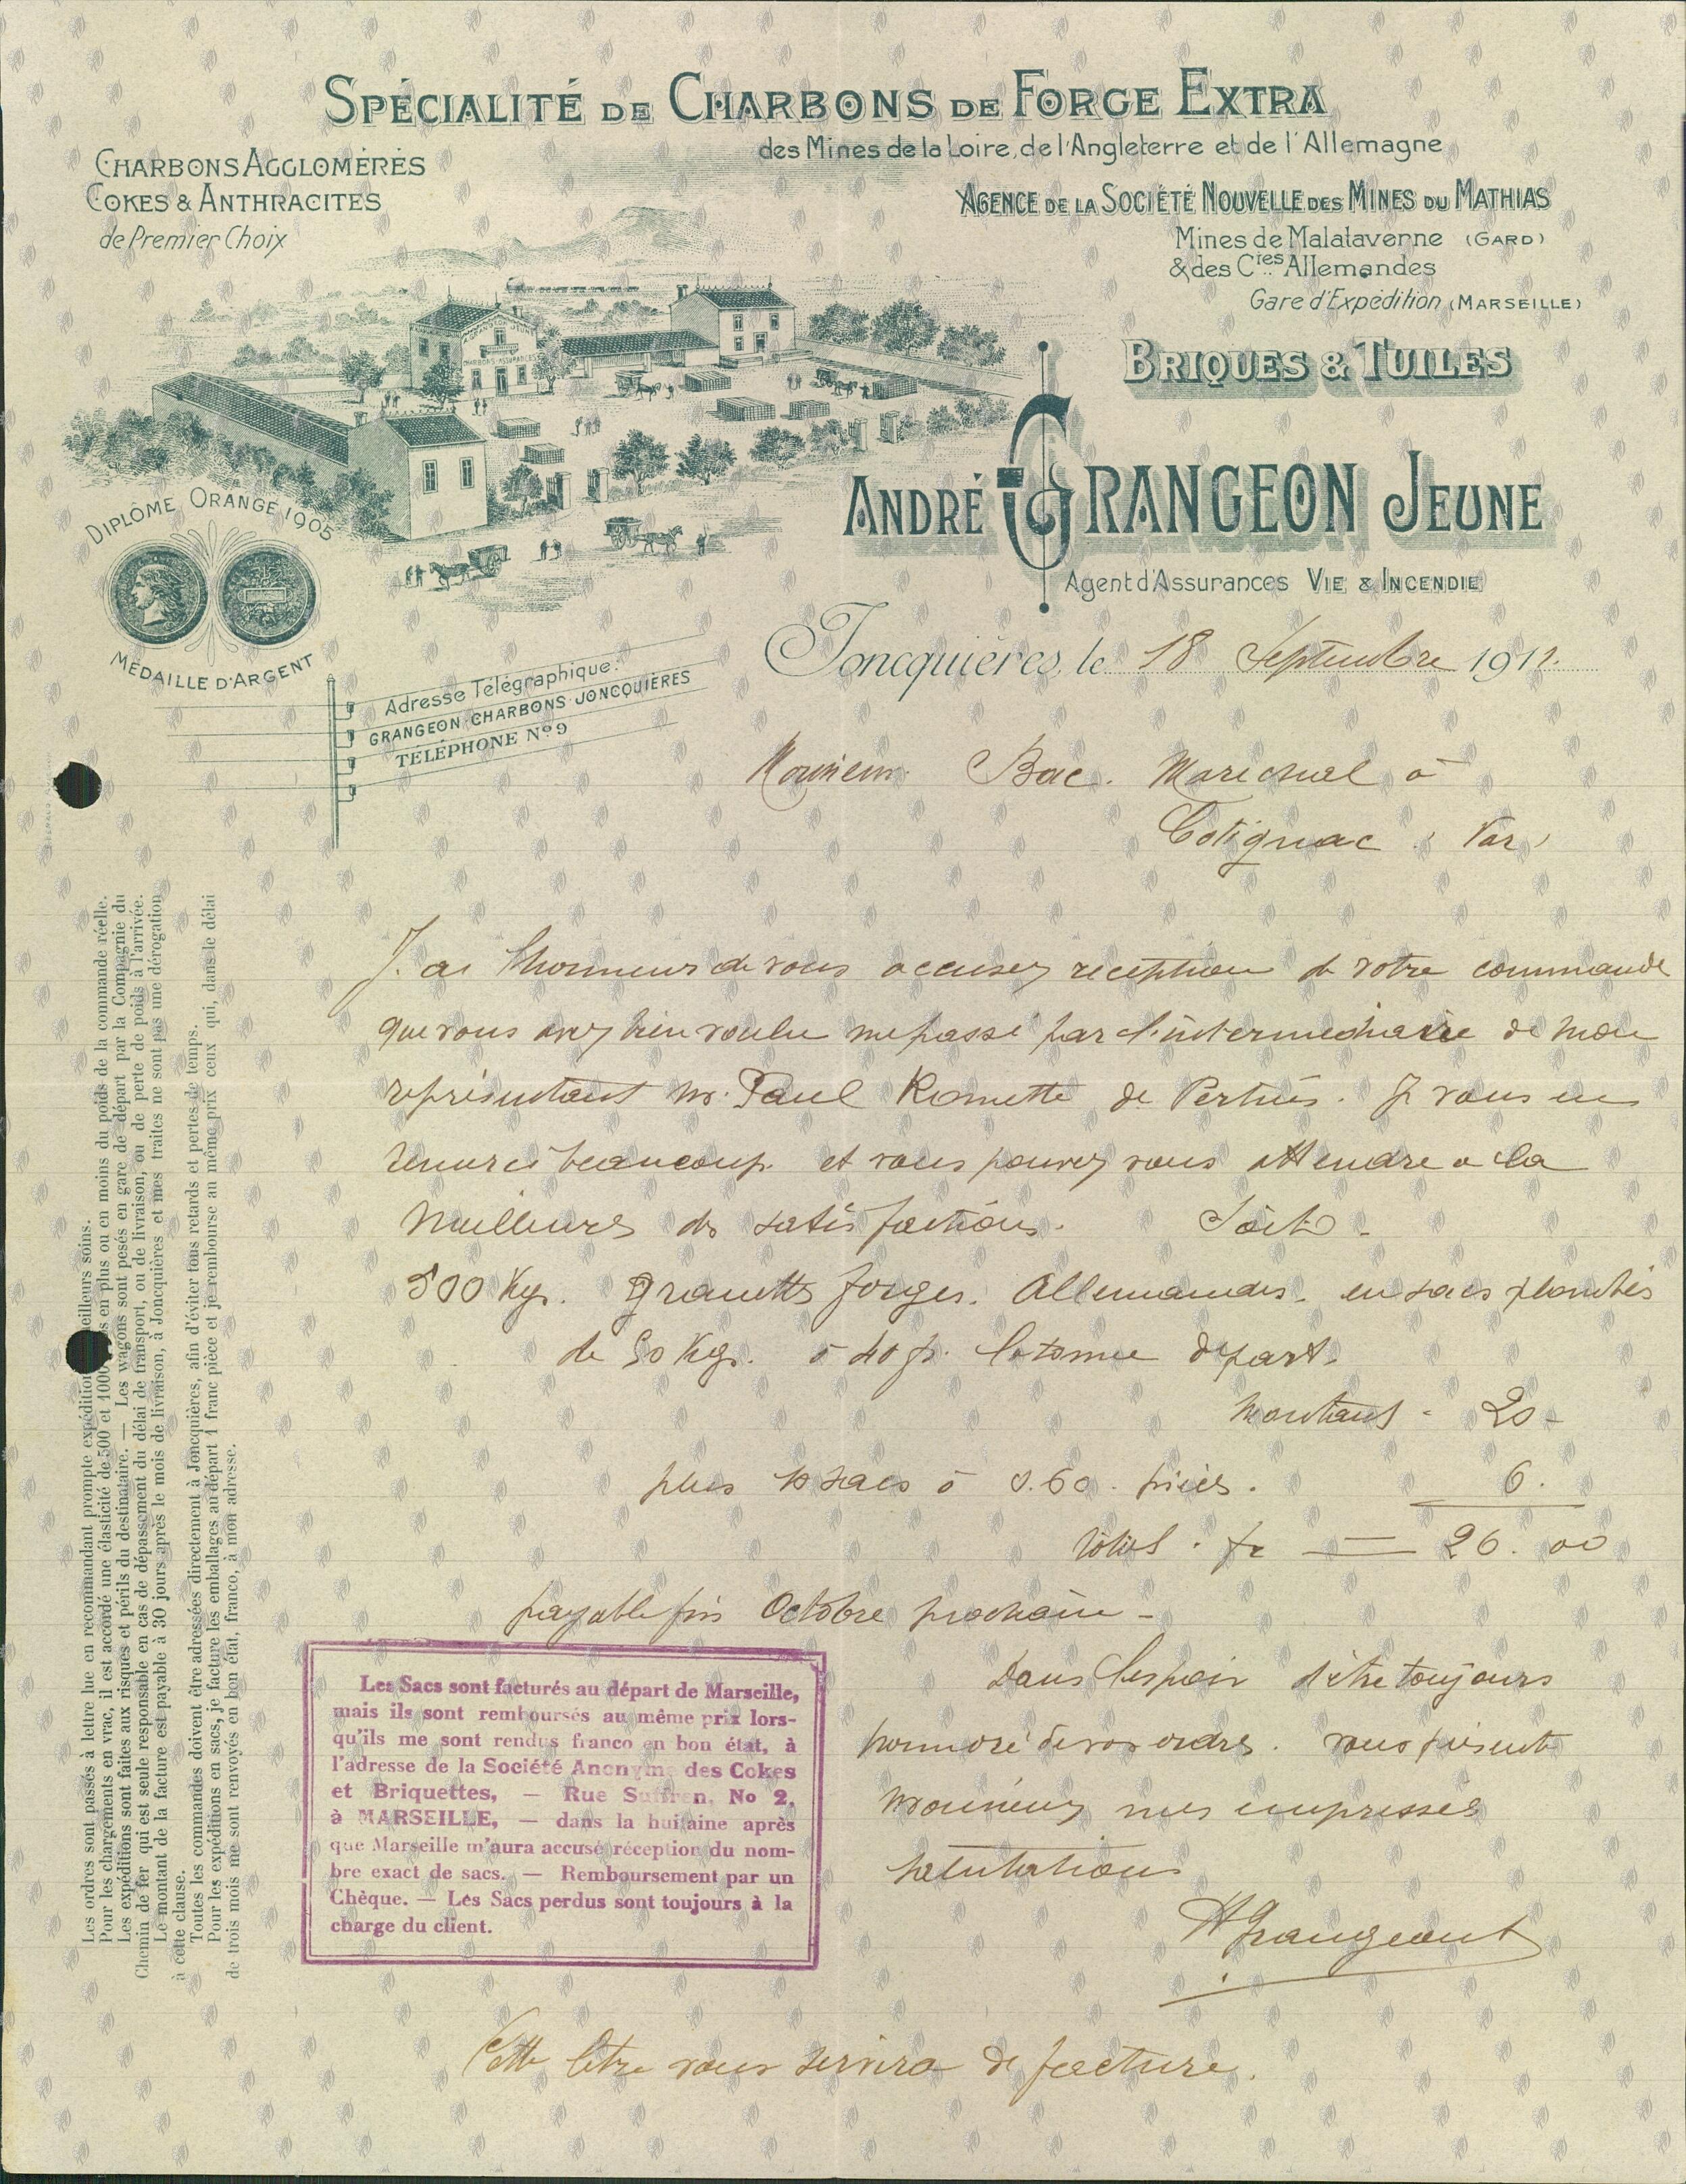 SPÉCIALITÉ DE CHARBONS DE FORGE EXTRA
des Mines de la Loire, de l'Angleterre et de l'Allemagne
CHARBONS AGGLOMÉRÉS
COKES & ANTHRACITES
de Premier Choix
AGENCE DE LA SOCIÉTÉ NOUVELLE DES MINES DU MATHIAS
Mines de Malataverne (GARD)
& des Cies Allemandes
Gare d'Expédition (MARSEILLE)
BRIQUES & TUILES
ANDRÉ GRANGEON JEUNE
Agent d'Assurances VIE & INCENDIE
DIPLÔME ORANGE 1905
MÉDAILLE D'ARGENT
Adresse Télégraphique:
GRANGEON-CHARBONS-JONCQUIÈRES
TÉLÉPHONE No 9
Joncquières, le 18 Septembre 1912.
Monsieur Bac. Marechal à
Cotignac (Var)
J'ai l'honneur de vous accuser réception de votre commande
que vous avez bien voulu me passé par l'intermediaire de mon
représentant Mr. Paul Romette de Pertuis. Je vous en
remercie beaucoup et vous pouvez vous attendre a la
Meilleures des satisfactions. Soit -
500 Kgs. Granetts forges. Allemandes. en sacs plombés
de 50 Kgs. à 40 fr. la tonne départ.
Montant - 20 -
plus 10 sacs à 0.60. pièces. 6.
Total. fr — 26.00
payable fin Octobre prochain -
Dans l'espoir d'être toujours
honnoré de vos ordres. vous présente
Monsieur mes empressés
salutations
AGrangeont
Cette letre vous servira de facture.
Les Sacs sont facturés au départ de Marseille,
mais ils sont remboursés au même prix lors-
qu'ils me sont rendus franco en bon état, à
l'adresse de la Société Anonyme des Cokes
et Briquettes, — Rue Suffren, No 2,
à MARSEILLE, — dans la huitaine après
que Marseille m'aura accusé réception du nom-
bre exact de sacs. — Remboursement par un
Chèque. — Les Sacs perdus sont toujours à la
charge du client.
Les ordres sont passés à lettre lue en recommandant prompte expédition eilleurs soins.
Pour les chargements en vrac, il est accordé une élasticité de 500 et 1000 s en plus ou en moins du poids de la commande réelle.
Les expéditions sont faites aux risques et périls du destinataire. — Les wagons sont pesés en gare de départ par la Compagnie du
Chemin de fer qui est seule responsable en cas de dépassement du délai de transport, ou de livraison, ou de perte de poids à l'arrivée.
Le montant de la facture est payable à 30 jours après le mois de livraison, à Joncquières et mes traites ne sont pas une dérogation
à cette clause.
Toutes les commandes doivent être adressées directement à Joncquières, afin d'éviter tous retards et pertes de temps.
Pour les expéditions en sacs, je facture les emballages au départ 1 franc pièce et je rembourse au même prix ceux qui, dans le délai
de trois mois me sont renvoyés en bon état, franco, à mon adresse.